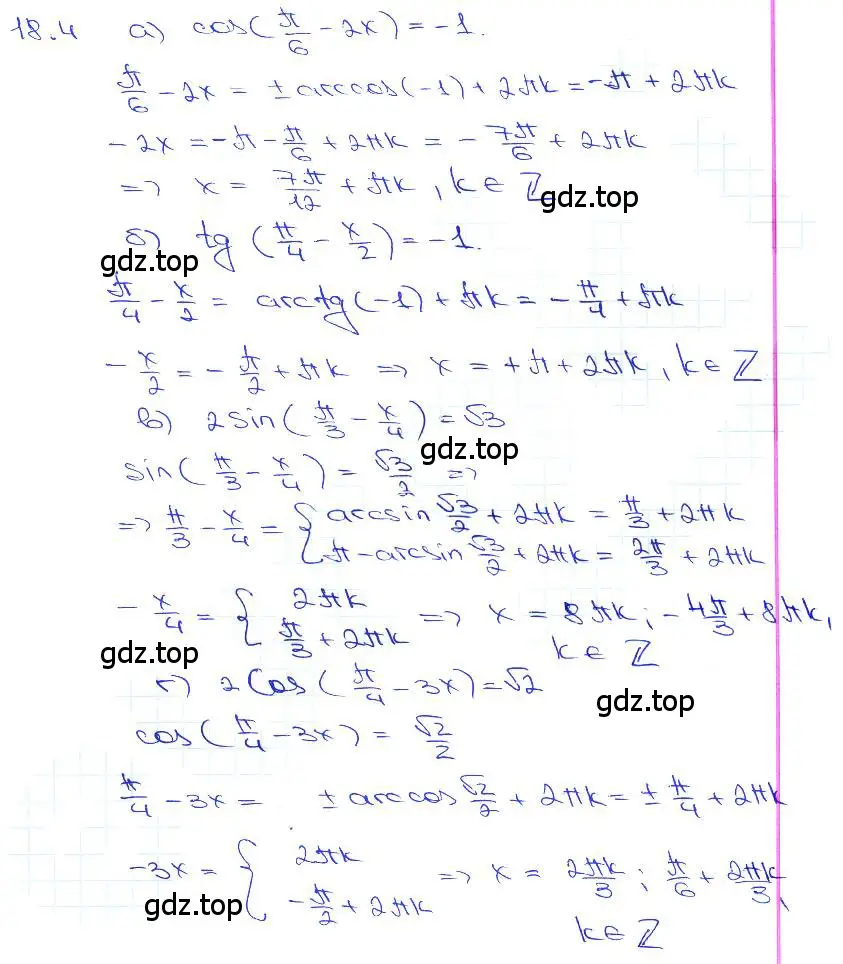 18.4 а) cos(π/6 - 2x) = -1.
π/6 - 2x = ± arccos(-1) + 2πk = -π + 2πk
-2x = -π - π/6 + 2πk = - 7π/6 + 2πk
=> x = 7π/12 + πk, k ∈ ℤ
gdz.top
б) tg (π/4 - x/2) = -1.
gdz.top
π/4 - x/2 = arctg(-1) + πk = - π/4 + πk
- x/2 = - π/2 + πk => x = +π + 2πk, k ∈ ℤ
в) 2 sin(π/3 - x/4) = √3
gdz.top
sin(π/3 - x/4) = √3/2 =>
=> π/3 - x/4 = { arcsin √3/2 + 2πk = π/3 + 2πk
π - arcsin √3/2 + 2πk = 2π/3 + 2πk
- x/4 = { 2πk => x = 8πk; - 4π/3 + 8πk,
π/3 + 2πk k ∈ ℤ
gdz.top
г) 2 cos(π/4 - 3x) = √2
gdz.top
cos(π/4 - 3x) = √2/2
π/4 - 3x = ± arccos √2/2 + 2πk = ± π/4 + 2πk
-3x = { 2πk => x = 2πk/3; π/6 + 2πk/3,
- π/2 + 2πk
gdz.top
k ∈ ℤ